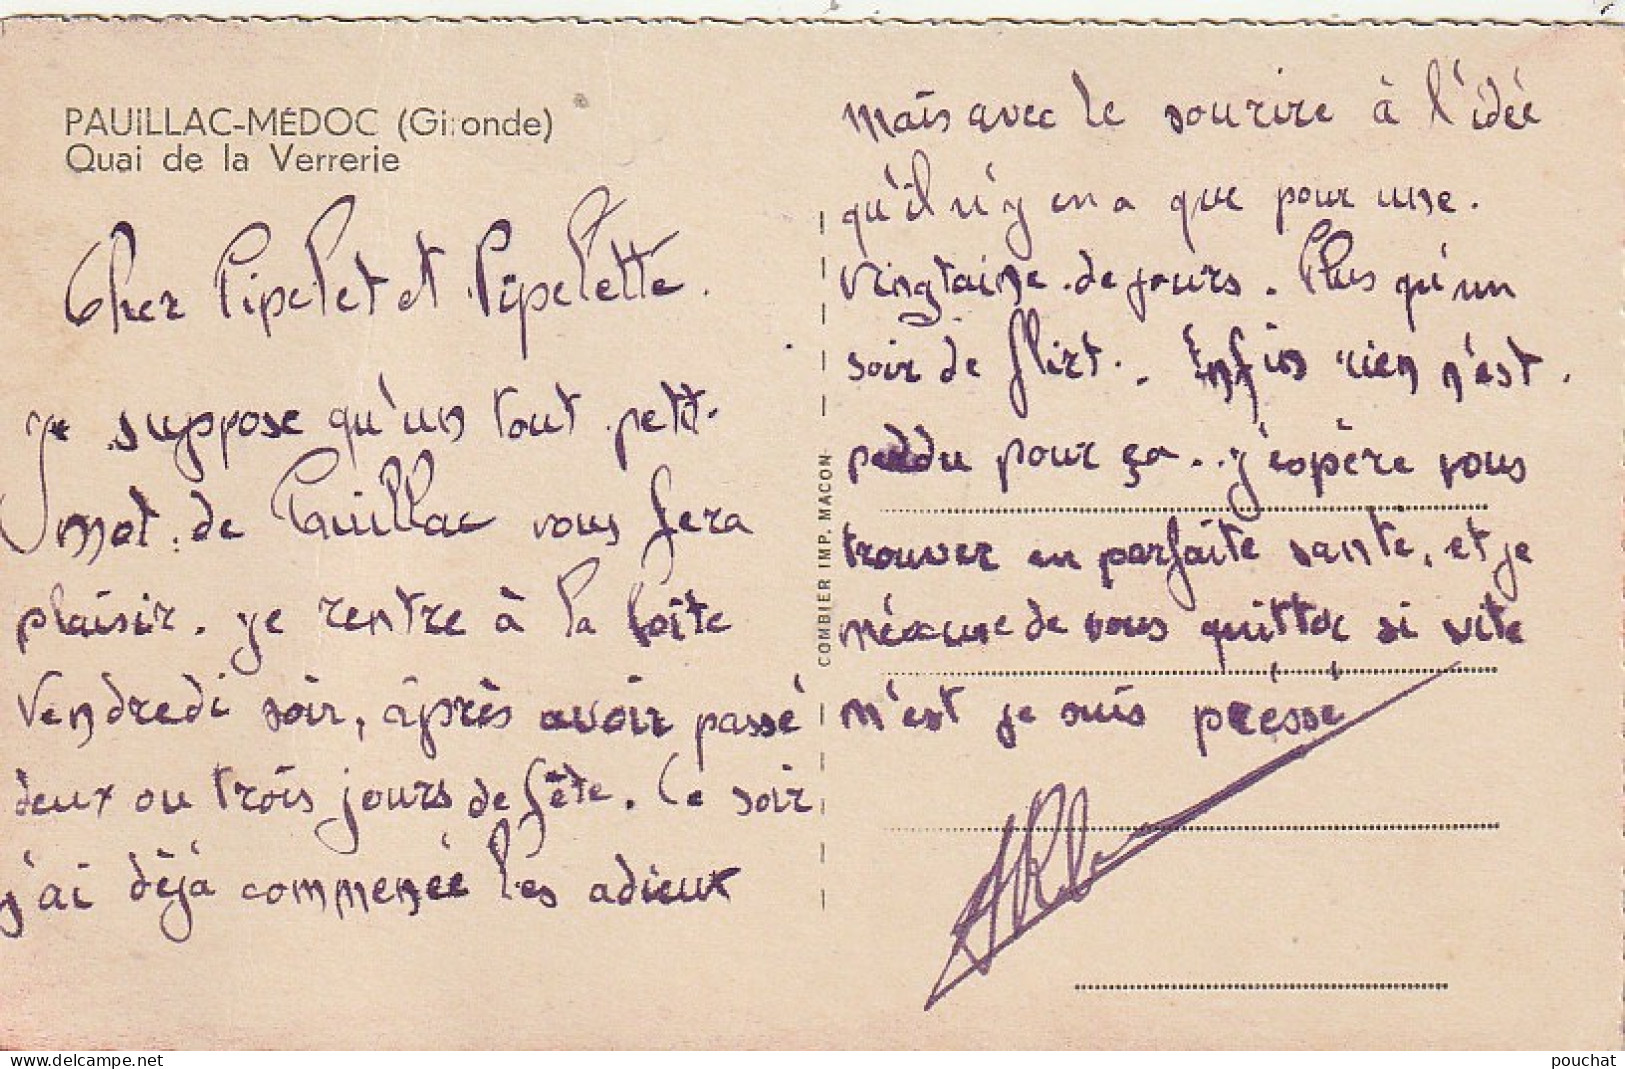 PAUILLAC-MÉDOC (Gironde)
Quai de la Verrerie
Cher Pipelet et Pipelette.
je suppose qu'un tout petit
mot de Pauillac vous fera
plaisir. je rentre à la boîte
Vendredi soir, après avoir passé
deux ou trois jours de fête. Ce soir
j'ai déjà commencé les adieux
mais avec le sourire à l'idée
qu'il n'y en a que pour une
vingtaine de jours. Plus qu'un
soir de flirt. Enfin rien n'est
perdu pour ça.. j'espère vous
trouver en parfaite santé, et je
m'excuse de vous quitter si vite
m'est je suis préssé
COMBIER IMP. MACON
www.delcampe.net
pouchat